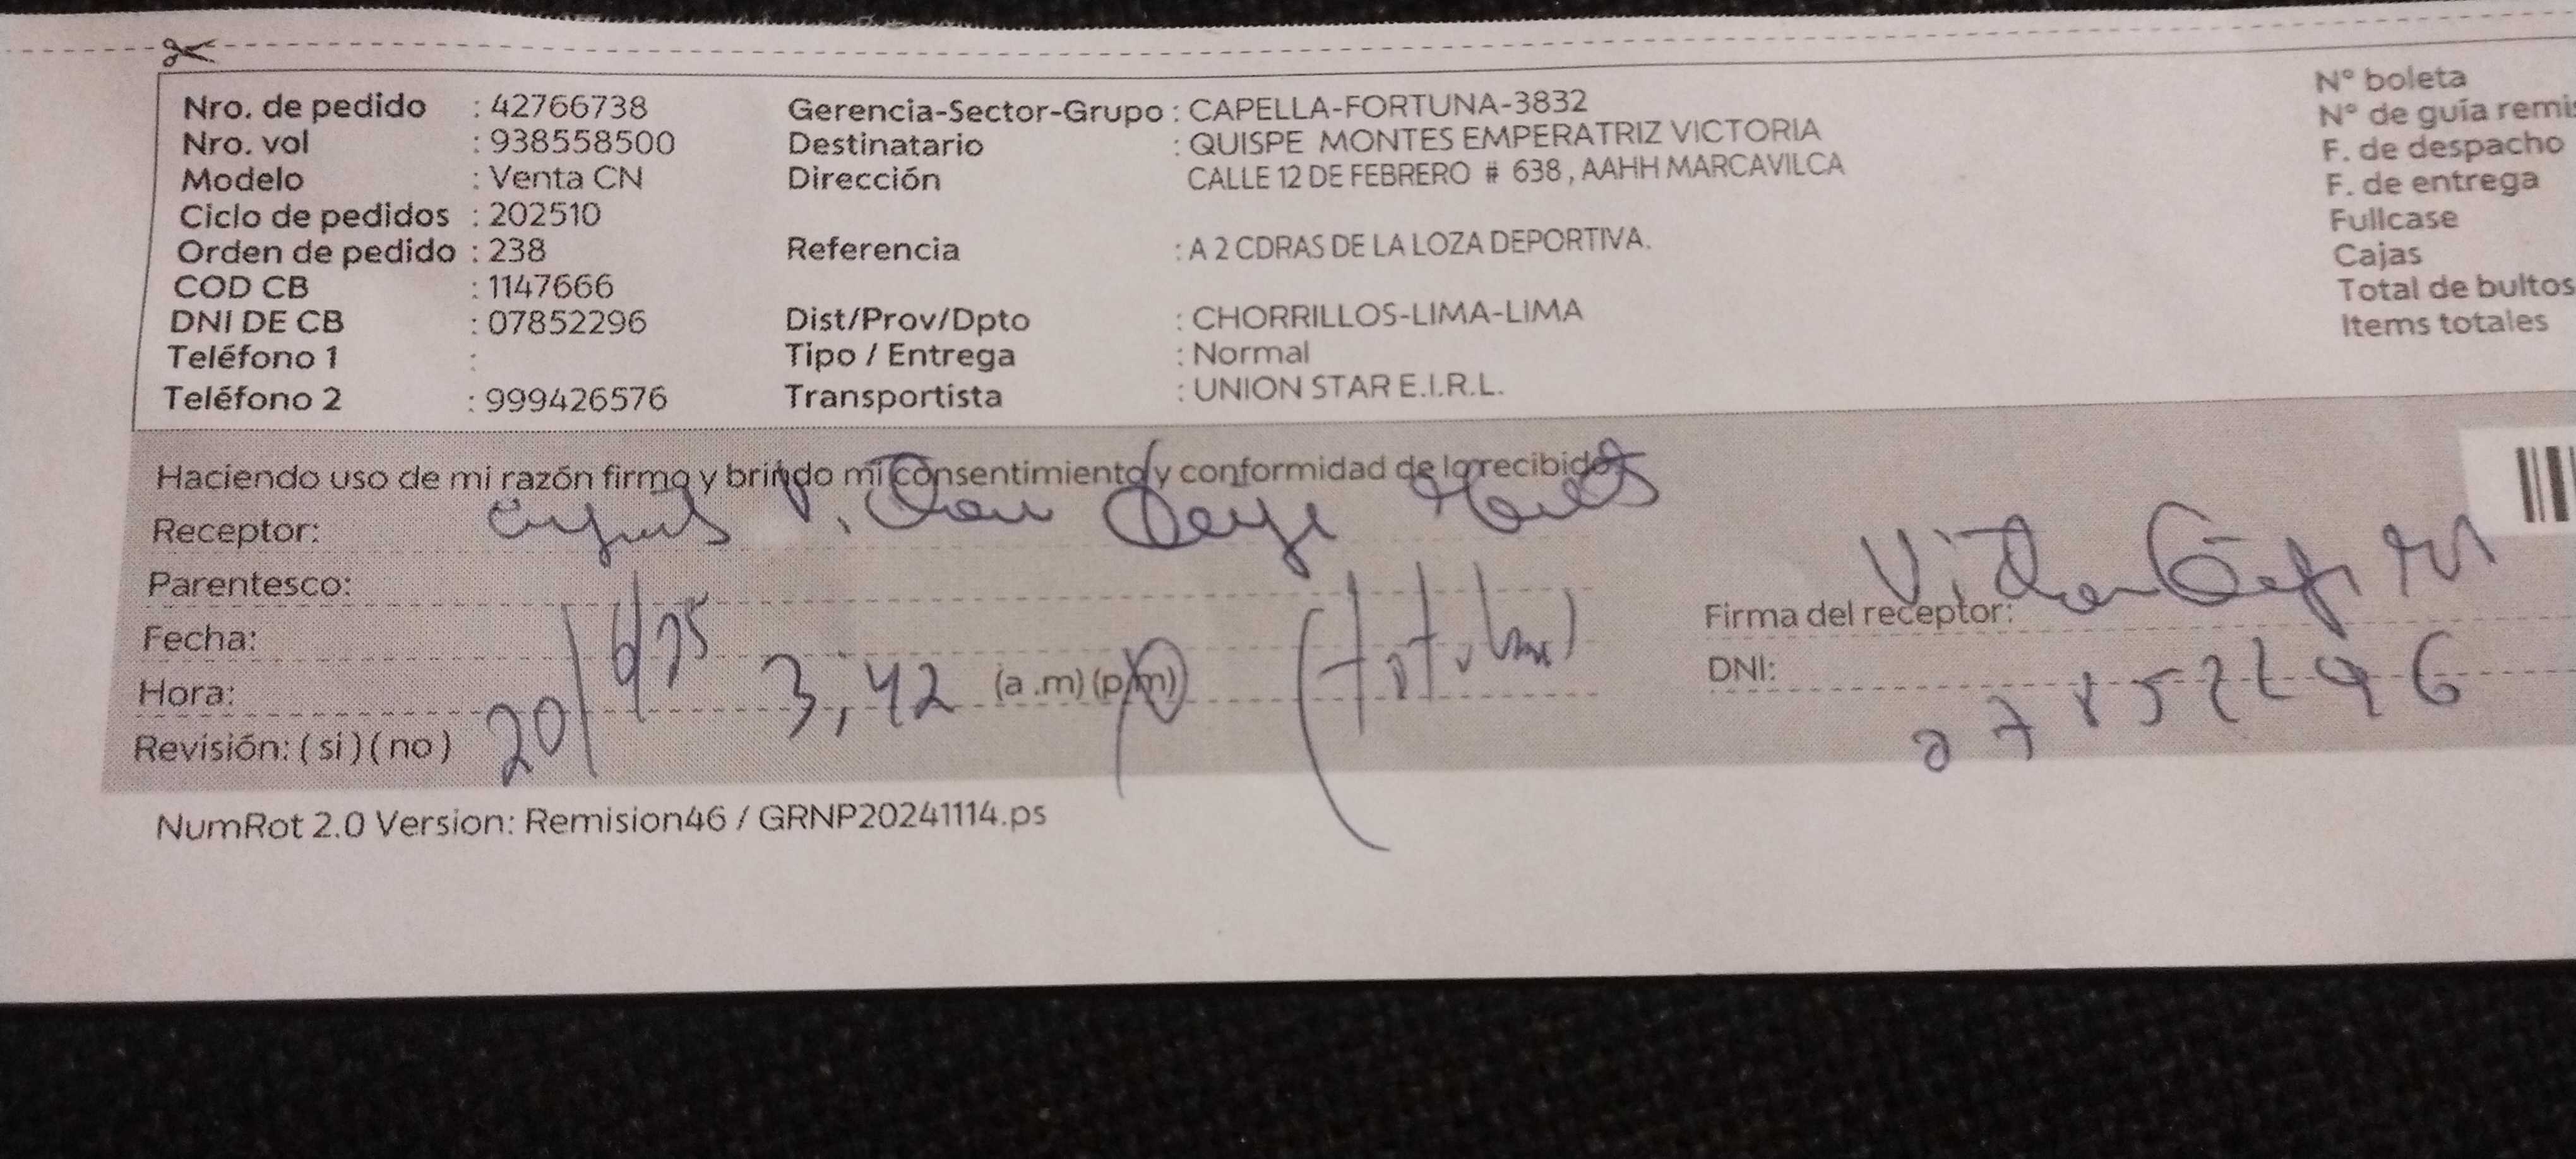 Nro. de pedido : 42766738
Nro. vol : 938558500
Modelo : Venta CN
Ciclo de pedidos : 202510
Orden de pedido : 238
COD CB : 1147666
DNI DE CB : 07852296
Teléfono 1 :
Teléfono 2 : 999426576
Gerencia-Sector-Grupo : CAPELLA-FORTUNA-3832
Destinatario : QUISPE MONTES EMPERATRIZ VICTORIA
Dirección CALLE 12 DE FEBRERO # 638, AAHH MARCAVILCA
Referencia : A 2 CDRAS DE LA LOZA DEPORTIVA.
Dist/Prov/Dpto : CHORRILLOS-LIMA-LIMA
Tipo / Entrega : Normal
Transportista : UNION STAR E.I.R.L.
N° boleta
N° de guía
F. de despacho
F. de entrega
Fullcase
Cajas
Total de bultos
Items totales
Haciendo uso de mi razón firmo y brindo mi consentimiento y conformidad de lo recibido
Receptor:
Parentesco:
Fecha: 20/6/25
Hora: 3,42 (a .m) (p.m)
Revisión: ( si ) ( no )
Firma del receptor:
DNI: 07852296
NumRot 2.0 Version: Remision46 / GRNP20241114.ps